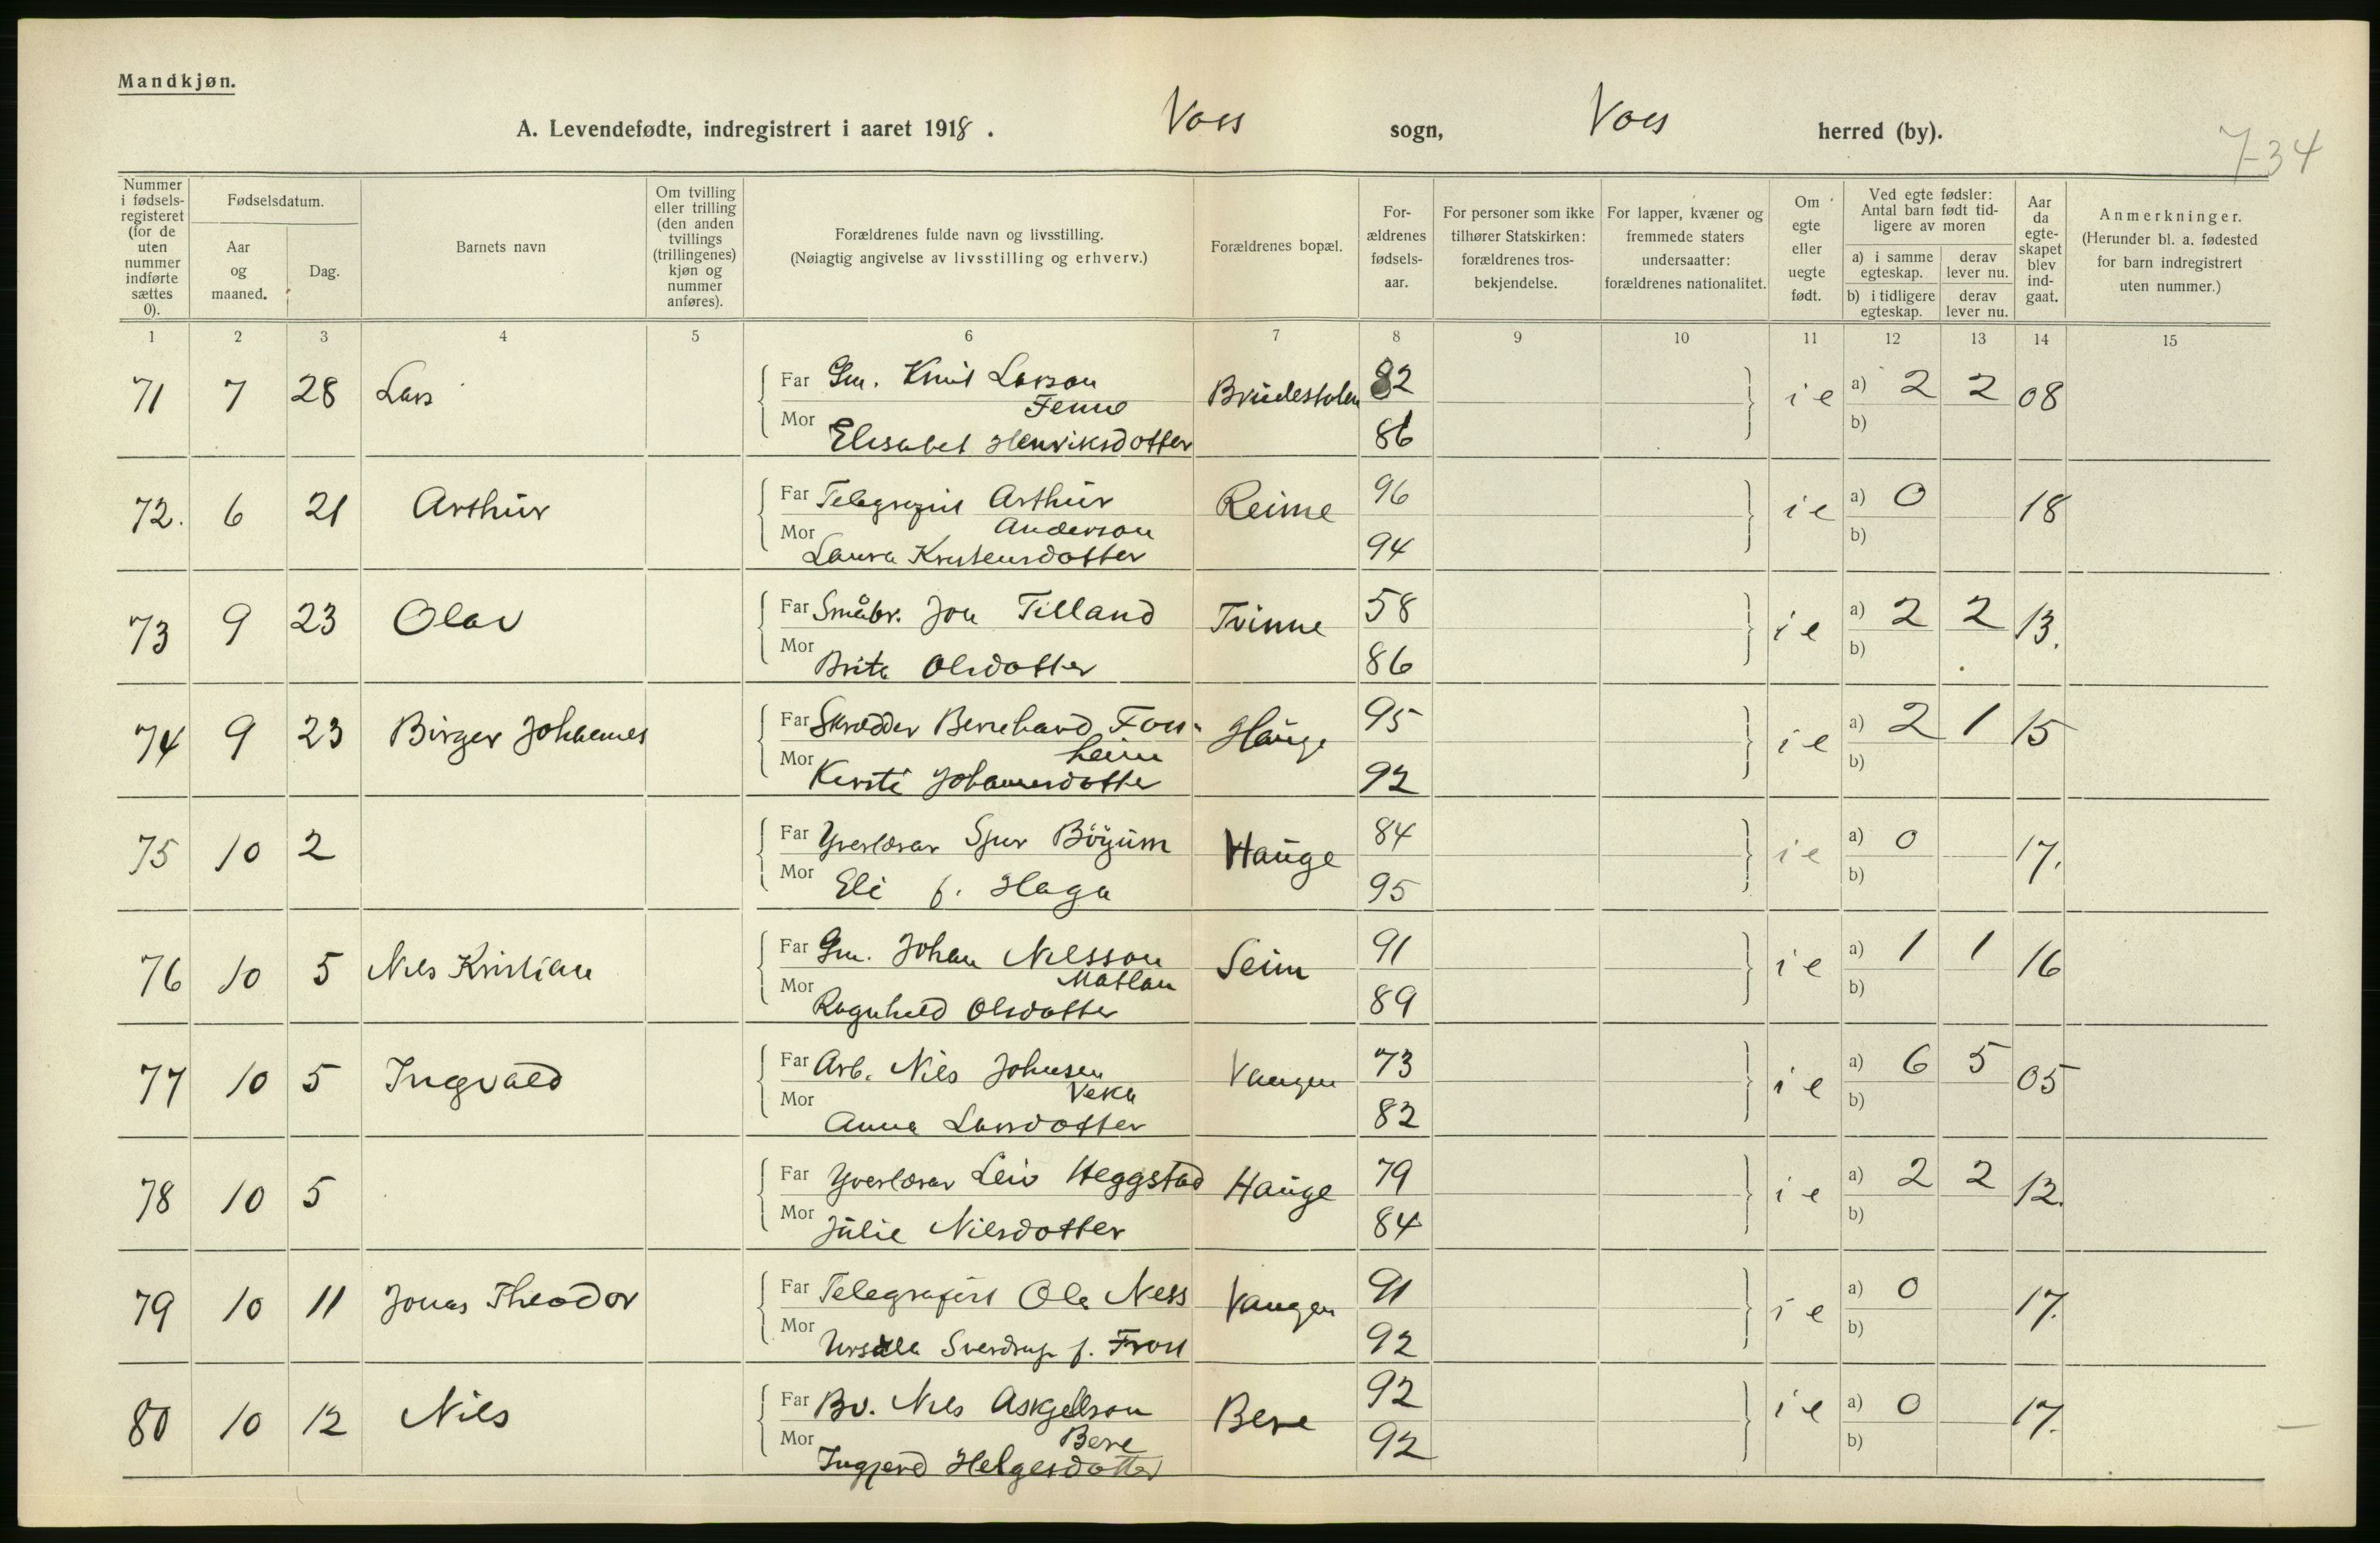 Mandkjøn.
A. Levendefødte, indregistrert i aaret 1918. Voss sogn, Voss herred (by).
7-34
Nummer i fødselsregisteret (for de uten nummer indførte sættes 0).
Fødselsdatum.
Aar og maaned.
Dag.
Barnets navn
Om tvilling eller trilling (den anden tvillings (trillingenes) kjøn og nummer anføres).
Forældrenes fulde navn og livsstilling.
(Nøiagtig angivelse av livsstilling og erhverv.)
Forældrenes bopæl.
Forældrenes fødselsaar.
For personer som ikke tilhører Statskirken: forældrenes trosbekjendelse.
For lapper, kvæner og fremmede staters undersaatter: forældrenes nationalitet.
Om egte eller uegte født.
Ved egte fødsler: Antal barn født tidligere av moren
a) i samme egteskap.
derav lever nu.
b) i tidligere egteskap.
derav lever nu.
Aar da egteskapet blev indgaat.
Anmerkninger.
(Herunder bl. a. fødested for barn indregistrert uten nummer.)
1 2 3 4 5 6 7 8 9 10 11 12 13 14 15
71 7 28 Lars Far Gm. Knut Larson Brudestolen 82 ie a) 2 2 08
Femne
Mor Elisabet Henriksdotter 86 b)
72. 6 21 Arthur Far Telegrafist Arthur Reime 96 ie a) 0 18
Anderson
Mor Laura Kristensdotter 94 b)
73 9 23 Olav Far Småbr. Jon Tilland Tvinne 58 ie a) 2 2 13.
Mor Brita Olsdotter 86 b)
74 9 23 Birger Johannes Far Skrædder Bernhard Foss- Hauge 95 ie a) 2 1 15
heim
Mor Kirsti Johannesdotter 92 b)
75 10 2 Far Yverlærar Sjur Böyum Hauge 84 ie a) 0 17.
Mor Eli f. Haga 95 b)
76 10 5 Nils Kristian Far Gm. Johan Nilsson Seim 91 ie a) 1 1 16
Mør Ragnhild Olsdotter 89 b)
77 10 5 Ingvald Far Arb. Nils Johnsen Vangen 73 ie a) 6 5 05
Veka
Mor Anna Larsdotter 82 b)
78 10 5 Far Yverlærar Leiv Heggstad Hauge 79 ie a) 2 2 12.
Mor Julie Nilsdotter 84 b)
79 10 11 Jonas Theodor Far Telegrafist Ole Ness Vangen 91 ie a) 0 17.
Mor Ursula Sverdrup f. Frost 92 b)
80 10 12 Nils Far Bv. Nils Askjellson Bere 92 ie a) 0 17.
Bere
Mor Ingjerd Helgesdotter 92 b)